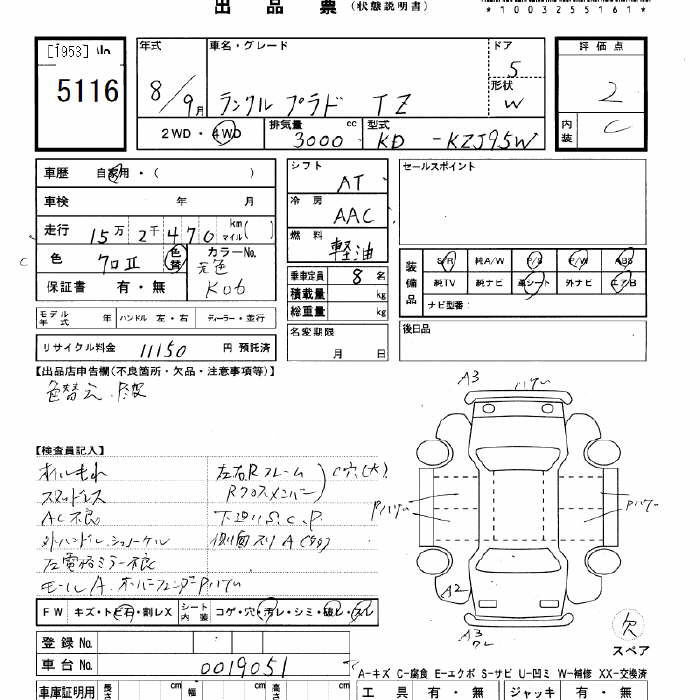 出品票（状態説明書）
*1003255161*
[1953]
5116
年式 8/9月
車名・グレード ランクルプラド TZ
ドア 5
形状 W
評価点 2
内装 C
2WD・4WD
排気量 3000 cc
型式 KD-KZJ95W
車歴 自家用・( )
車検 年 月
走行 15万2千470 km マイル( )
色 クロII 色替
カラーNo. 元色 K06
保証書 有・無
シフト AT
冷房 AAC
燃料 軽油
乗車定員 8名
積載量 kg
総重量 kg
名変期限 月 日
セールスポイント
装備品 S/R 純A/W P/S P/W ABS
純TV 純ナビ 革シート 外ナビ エアB
ナビ型番:
後日品
モデル年式 年 ハンドル 左・右 ディーラー・並行
リサイクル料金 11150 円 預託済
【出品店申告欄(不良箇所・欠品・注意事項等)】
色替え.
【検査員記入】
オイルもれ
スタッドレス
AC不良
外ハンドル.シュノーケル
左電格ミラー不良
モールA. オーバーフェンダーPハゲ
左右Rフレーム
Rクロスメンバー
C穴(大)
下廻りS.C.P
側面スリA(多少)
A3
ハゲ
Pハゲ
Pハゲ
A2
A3
ワレ
欠
スペア
FW キズ・トビ石・割レX
シート内装 コゲ・穴・汚レ・シミ・破レ・スレ
登録No.
車台No. 0019051
A−キズ C−腐食 E−エクボ S−サビ U−凹ミ W−補修 XX−交換済
車庫証明用 長さ cm 幅 cm 高さ cm
工具 有・無 ジャッキ 有・無